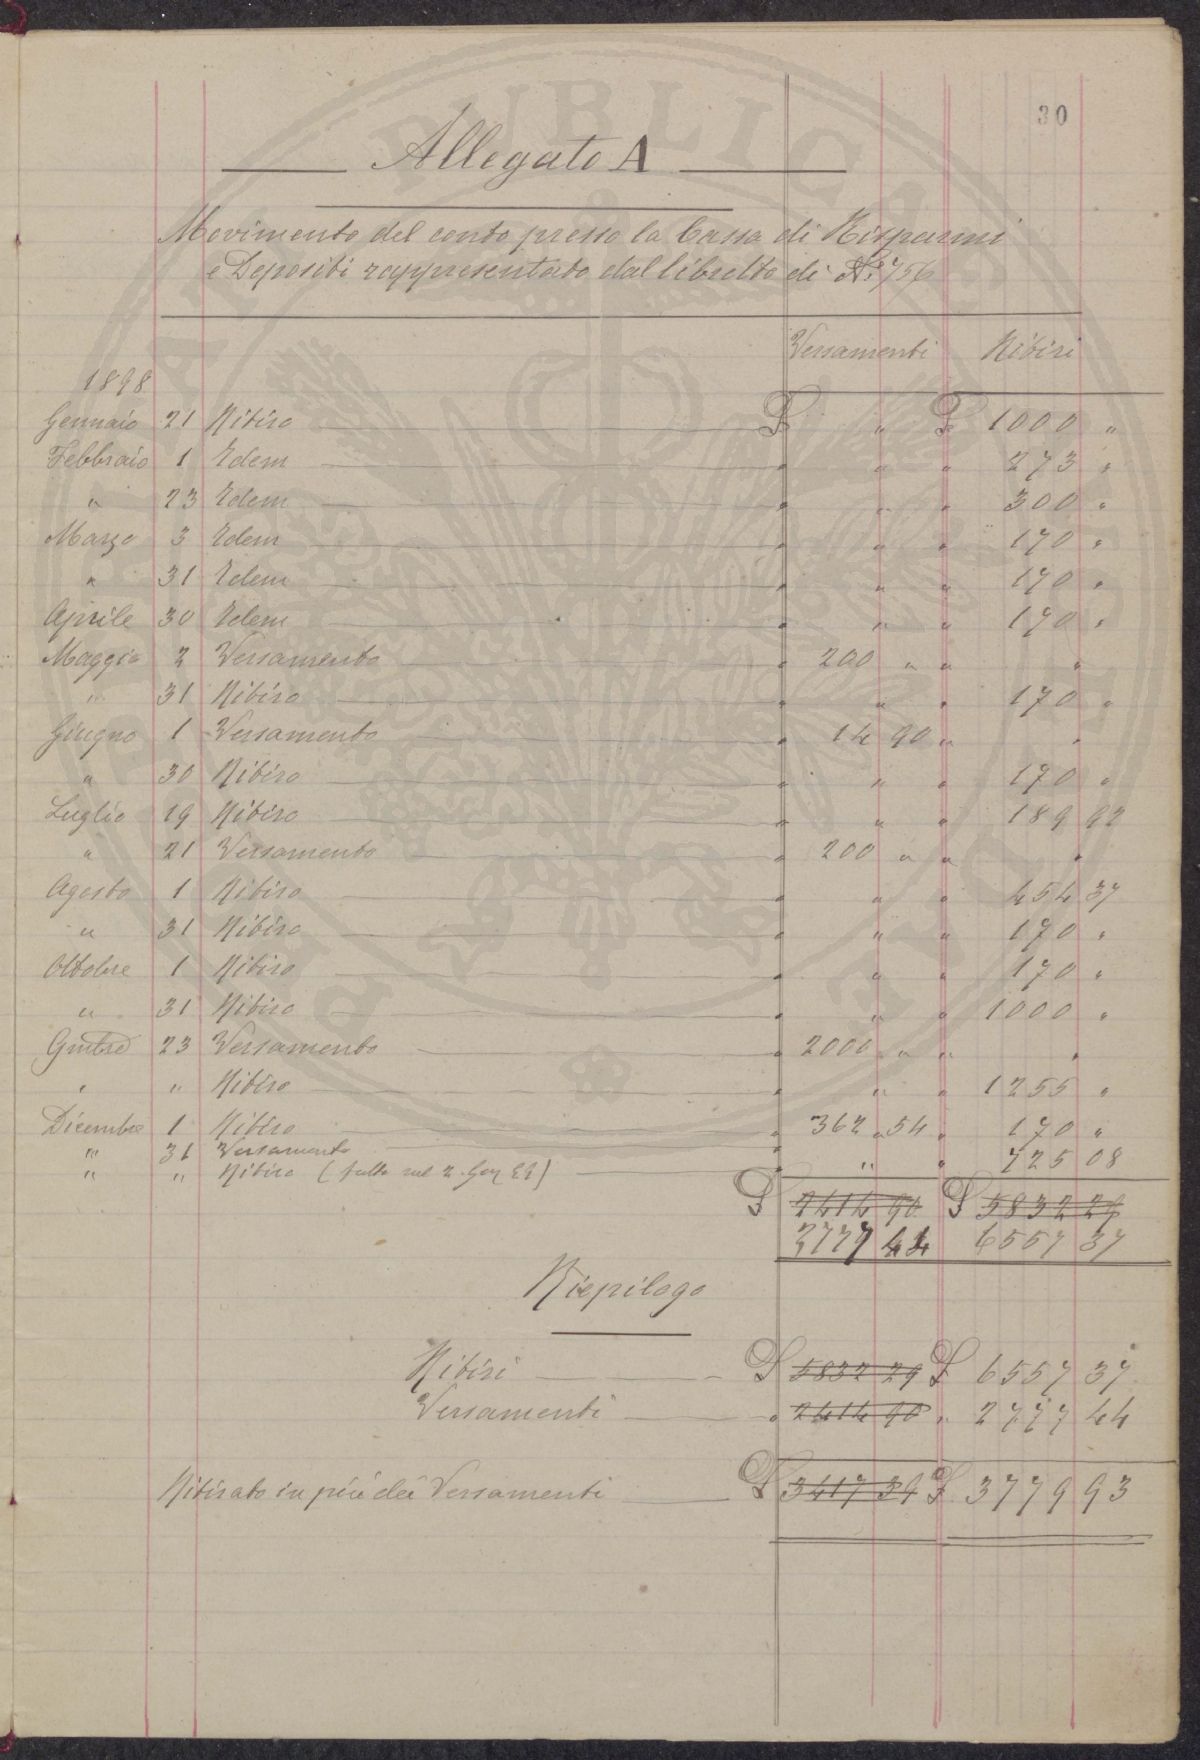 30
Allegato A
Movimento del conto presso la Cassa di Risparmi
e Depositi rappresentato dal libretto di N.° 756
Versamenti Ritiri
1898
Gennaio 21 Ritiro £ " £ 1000 "
Febbraio 1 Idem " " " 273 "
" 23 Idem " " " 300 "
Marzo 3 Idem " " " 170 "
" 31 Idem " " " 170 "
Aprile 30 Idem " " " 170 "
Maggio 2 Versamento " 200 " " "
" 31 Ritiro " " " 170 "
Giugno 1 Versamento " 14 90 " "
" 30 Ritiro " " " 170 "
Luglio 19 Ritiro " " " 189 92
" 21 Versamento " 200 " " "
Agosto 1 Ritiro " " " 454 37
" 31 Ritiro " " " 170 "
Ottobre 1 Ritiro " " " 170 "
" 31 Ritiro " " " 1000 "
23 Versamento " 2000 " " "
" " Ritiro " " " 1255 "
Dicembre 1 Ritiro " 362 54 " 170 "
" 31 Versamento
" " Ritiro (fatto nel 2 Gen 99) " " " 725 08
£ 2414 90 £ 5832 29
2777 44 6557 37
Riepilogo
Ritiri £ 5832 29 £ 6557 37
Versamenti " 2414 90 " 2777 44
Ritirato in più dei Versamenti £ 3417 39 £ 3779 93